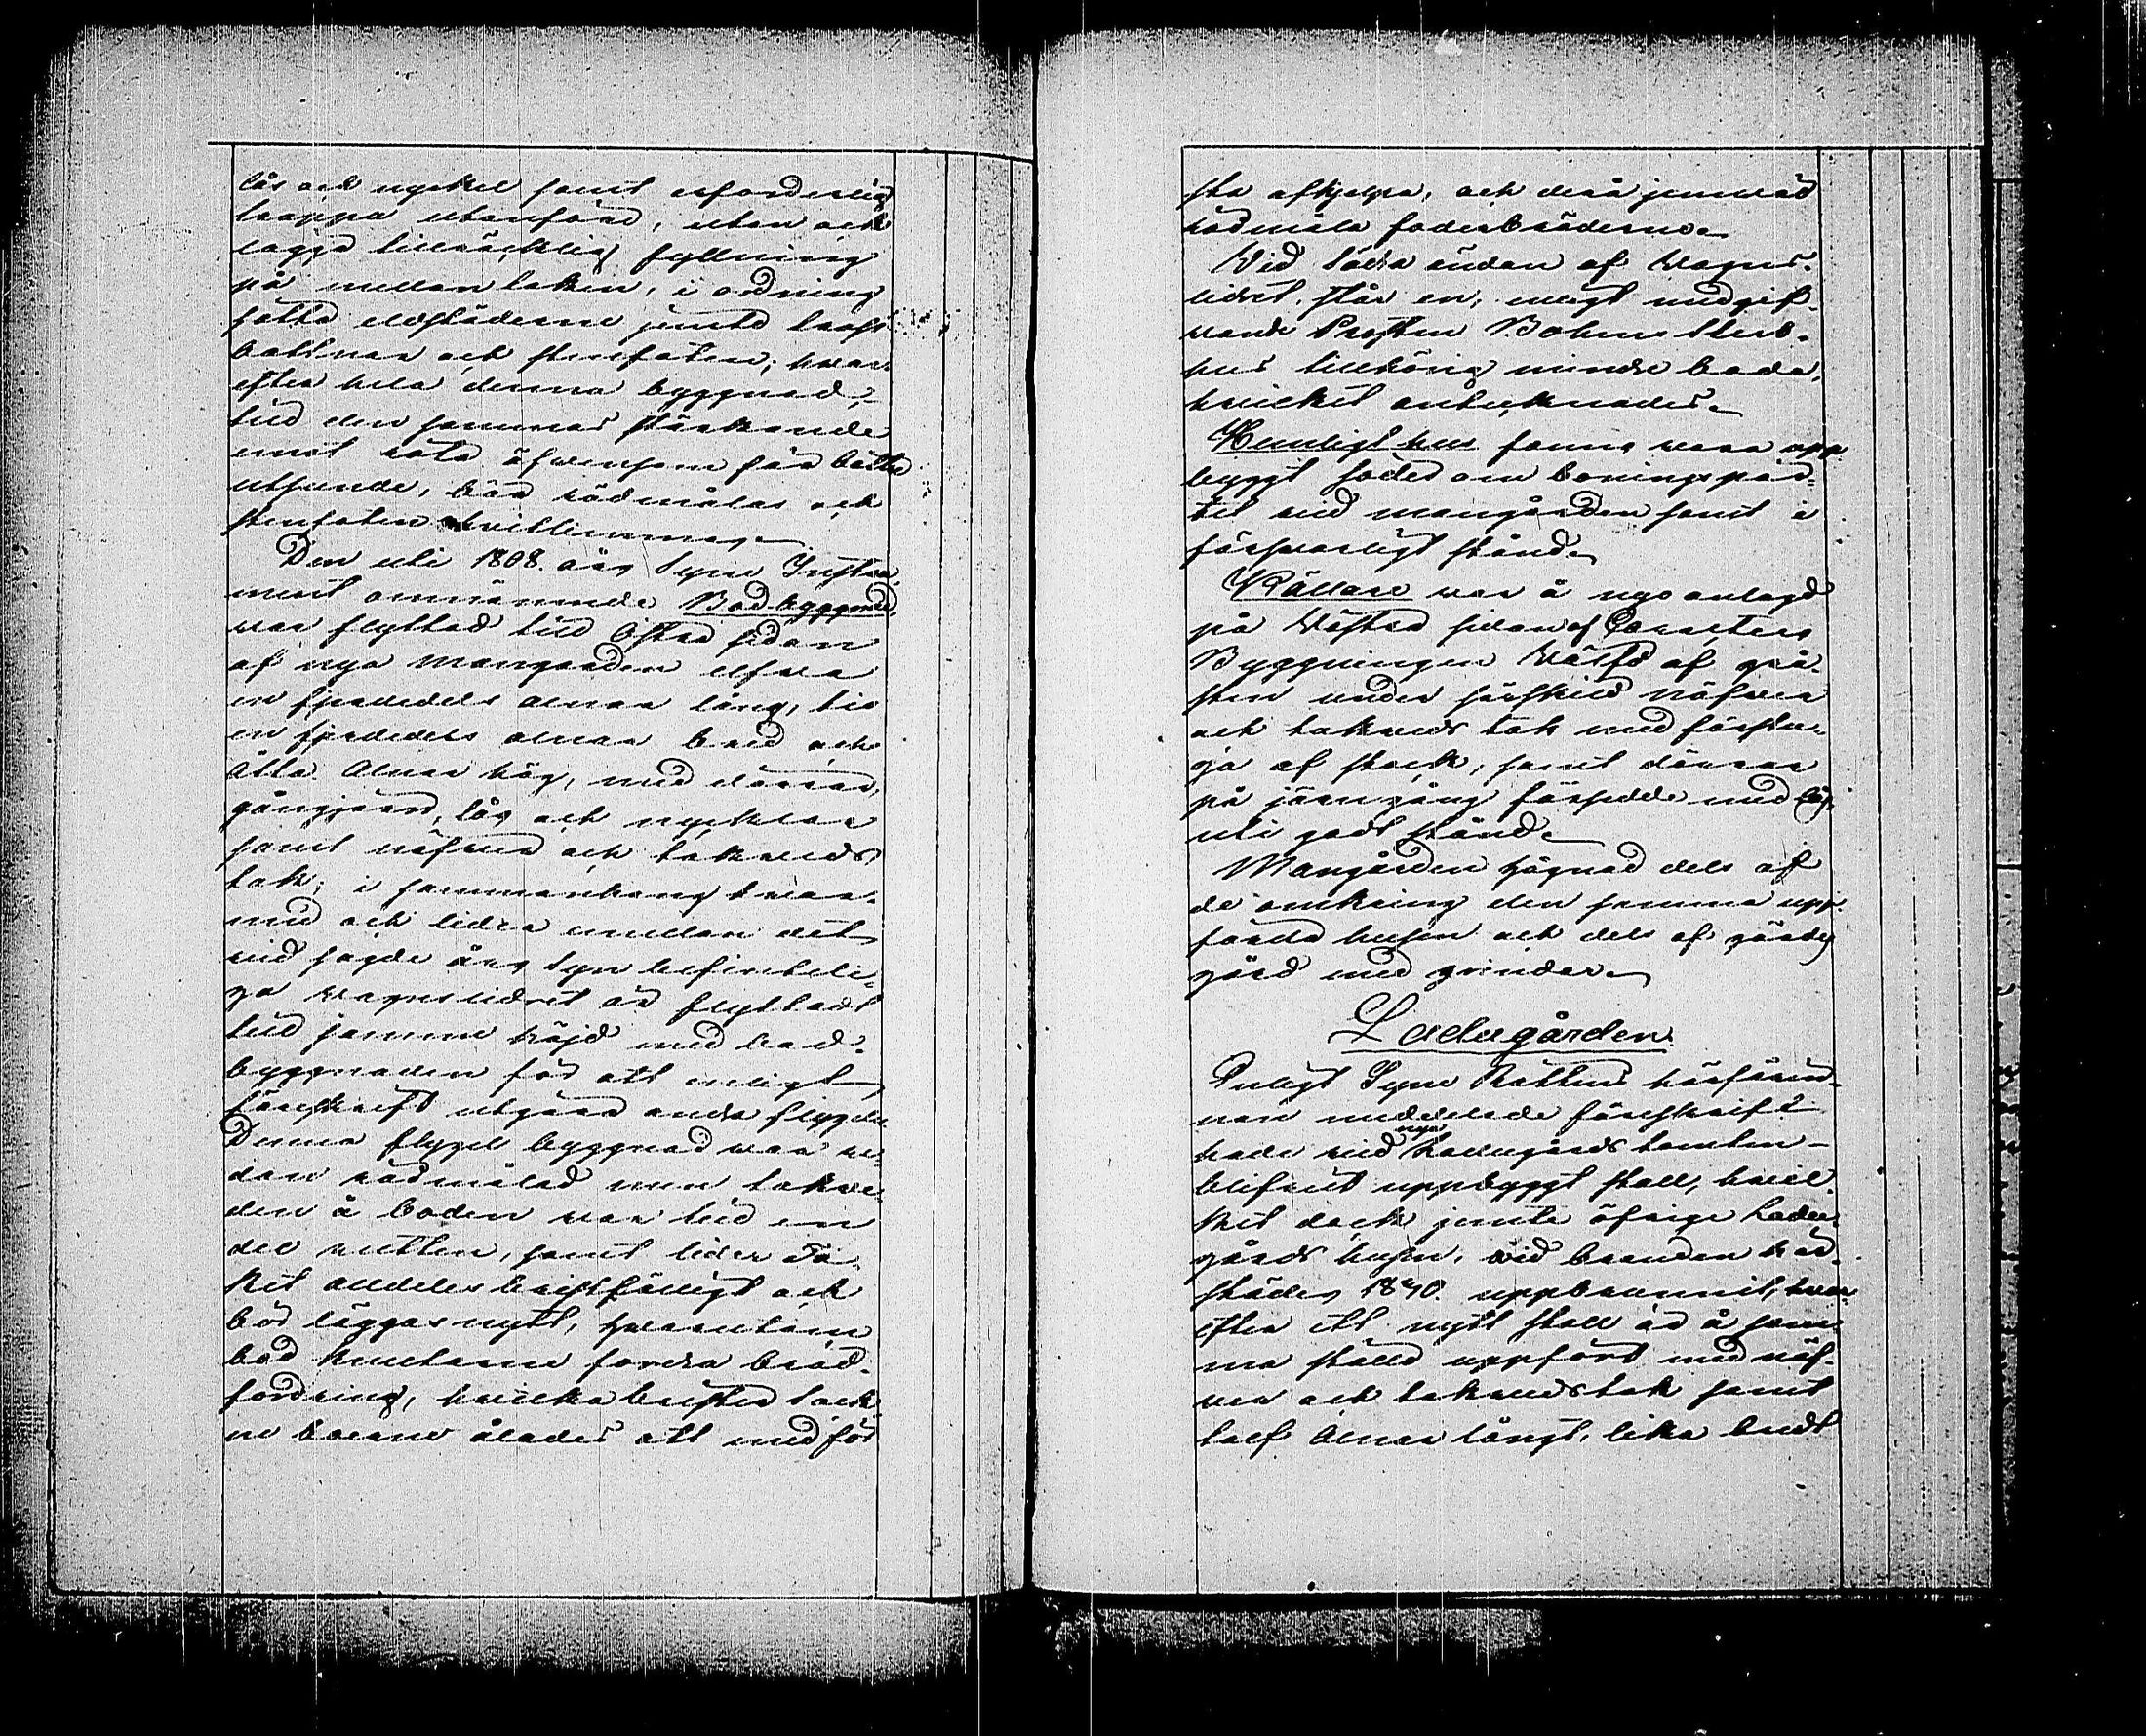 lås och nyckel samt erforderlig
trappa utanföre, utan ock
lägga tillräcklig fyllning
på mellantaken, i ordning
sätta eldstäderne jemte tross
bottnar och stenfoten; hvar
efter hela denna byggnad,
till den sammas stärkande
emot röta äfvensom för bättre
utseende, bör rödmålas och
stenfoten hvitlimmas.
Den uti 1808. års Syne Instru
ment omnämnde Bodbyggnad,
var flyttad till Östra sidan
af nya mangården elfva
en fjerdedels alnar lång, tio
en fjerdedels alnar bred och
åtta alnar hög, med dörrar,
gångjern, lås och nycklar
samt näfver och takveds
tak; i sammanhang hvar-
med och lidra emellan det
vid sagde års Syn befintli-
ga vagnslidret är flyttadt
till samma höjd med bod-
byggnaden för att enligt
föreskrift utgöra andra flygeln
Denna flygel byggnad var re-
dan rödmålad men takve-
den å boden var till en
del rutten, samt lider Ta-
ket alldeles bristfälligt och
bör läggas nytt, hvarutom
bod knutarne fordra bräd-
fordring, hvilka brister Sock-
ne boerne ålades att med för
sta afhjelpa, och derå jemväl
rödmåla foderbräderne.
Vid södra ändan af Vagns-
lidret står en, enligt uppgif-
vande Prosten Bohms Sterb-
hus tillhörig mindre bode,
hvilket antecknades.
Hemligt hus fanns vara upp-
byggt söder om boningspör-
tet vid mangården samt i
försvarligt stånd.
Källare var å nyo anlagd
på Västra sidan af Caracters
Byggningen Välfd af grå-
sten under särskild näfver
och takveds tak med förstu-
ga af stock, samt dörrar
på järngång försedde med lås,
uti godt stånd.
Mangården hägnad dels af
de omkring den samma upp-
förda husen och dels af gärdes
gård med grindar.
Ladugården.
Enligt Syne Rättens härförin-
nan meddelade föreskrift
hade vid nya Ladugårds tomten
blifvit uppbyggt stall, hvil-
ket dock jemte öfrige Ladu-
gårds husen, vid branden här-
städes 1840. uppbrunnit, hvar-
efter ett nytt stall är å sam-
ma ställe uppfört med näf-
ver och takveds tak samt
tolf alnar långt, lika bredt